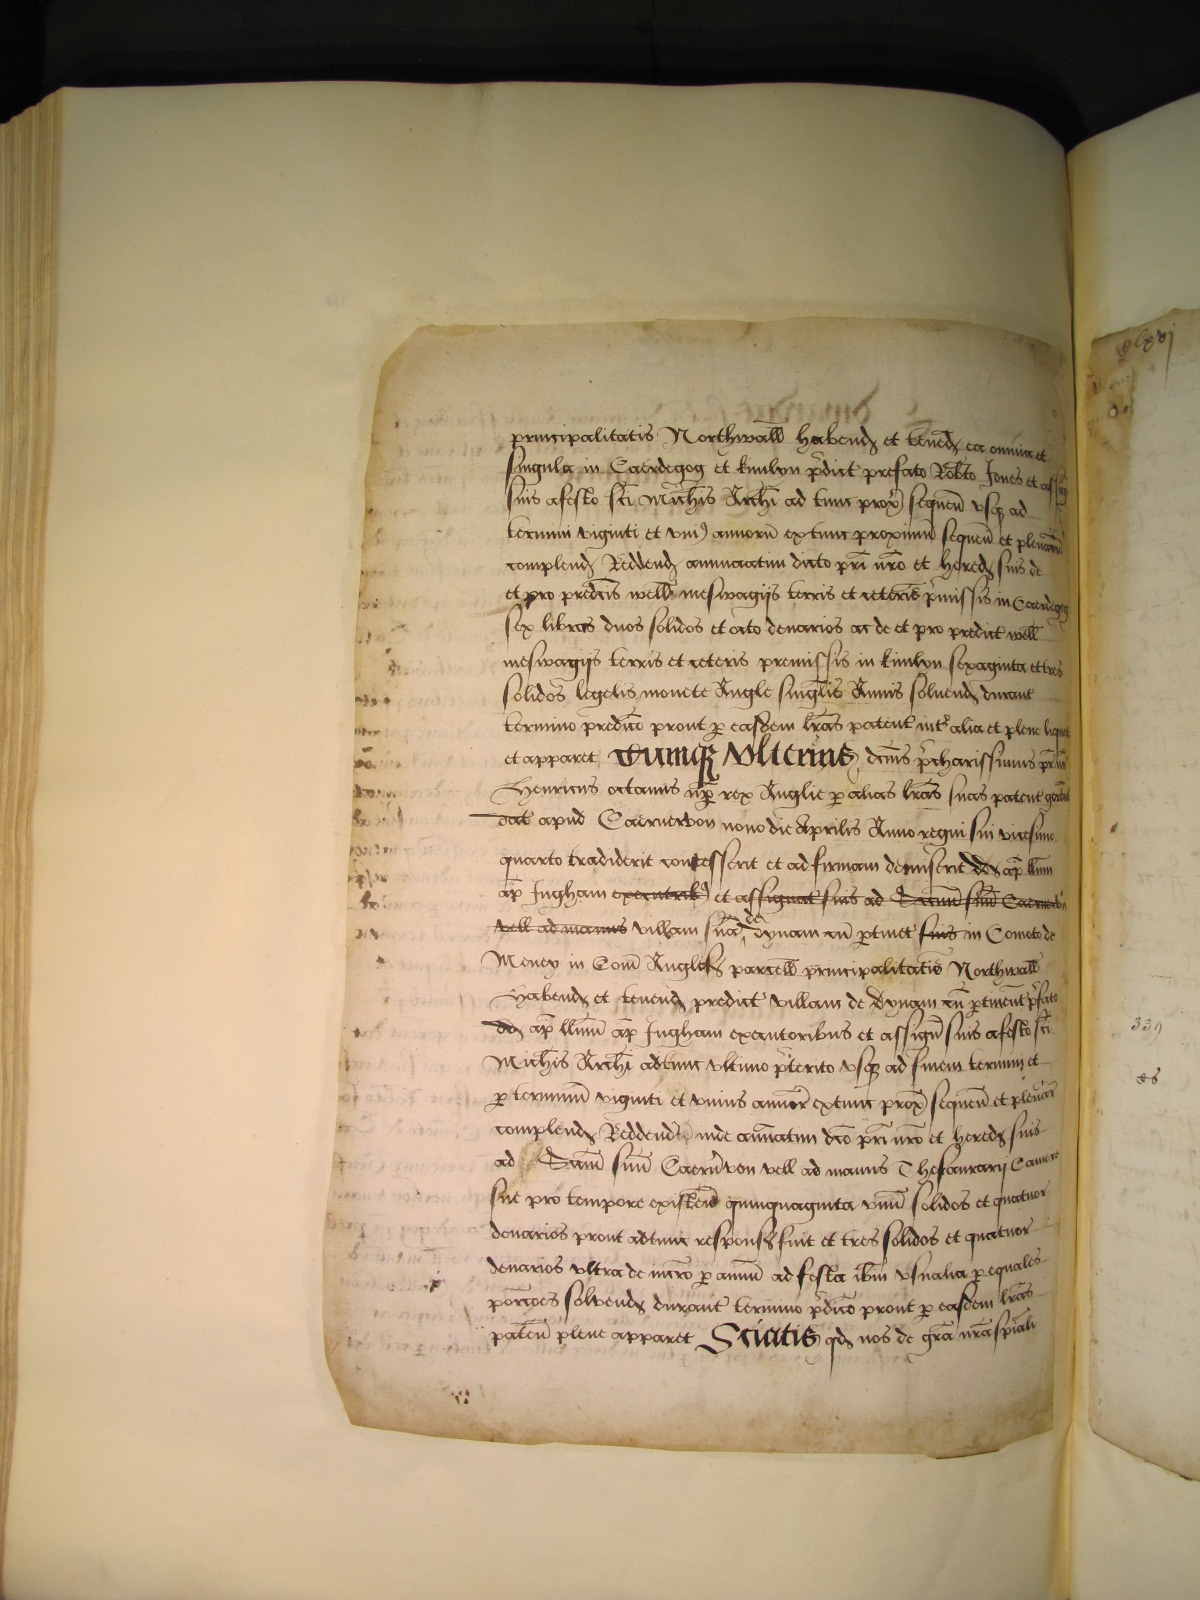 principalitatis Northwall habend et tenend ea omnia et
singula in Caerdegog et kimlyn predict prefato Robto Jones et assig
suis a festo sci Michis Archi ad tunc prox sequen vsq ad
termini viginti et vni annoru extunc proximu sequen et plenarie
complend Reddend annuatim dicto pri nro et hered suis de
et pro predcis well meswagijs terris et ceteris pmissis in Caerdegog
sex libras duos solidos et octo denarios ac de et pro predict well
meswagijs terris et ceteris premissis in kimlyn sexaginta et tres
solidos legalis monete Angle singlis Annis soluend durant
termino predco prout p easdem lras patent int alia et plene liquet
et apparet Cumq vlterius dcus pcharissimus pr nr
Henricus octauus nup rex Anglie p alias lras suas patent
dat apud Caernervon nono die Aprilis Anno regni sui vicesimo
quarto tradiderit concesserit et ad firmam demiserit dd ap llm
ap Jngham executrib et assignat suis ad Scacm suu Caernarvon
vell ad manus villam sua de dynam cu ptinet suis in Comoto de
Meney in Com Angles parcell principalitatis Northwall
Habend et tenend predict villam de dynam cu ptinent pfato
dd ap llm ap Jngham executoribus et assign suis a festo sci
Michis Archi adtunc vltimo pterito vsq ad finem termini et
p terminu viginti et vnius annor extunc prox sequen et plenar
complend Reddend inde annatim dco pri nro et hered suis
ad Scacm suu Caernvon vell ad manus Thesaurarij Camere
sue pro tempore existen quinquaginta vnu solidos et quatuor
denarios prout adtunc respons fuit et tres solidos et quatuor
denarios vltra de incro p annu ad festa ibm vsualia p equales
porcoes solvend durant termino pdco prout p easdem lras
paten plene apparet Sciatis qd nos de gra nra spiali
339